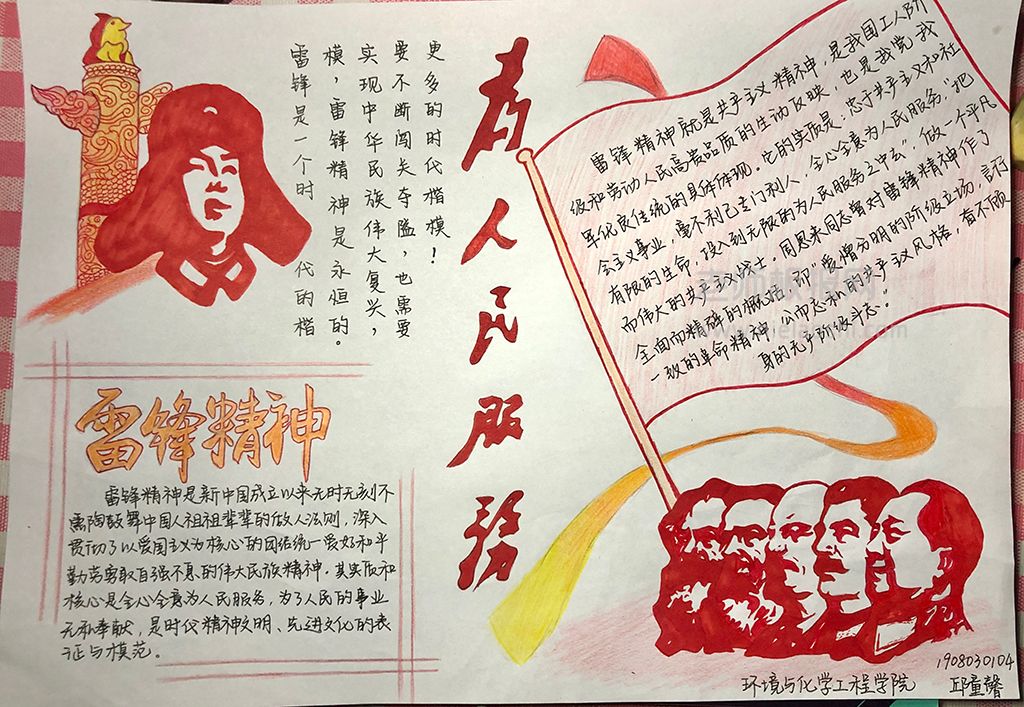 雷锋是一个时代的楷
模，雷锋精神是永恒的。
实现中华民族伟大复兴，
要不断闯关夺隘，也需要
更多的时代楷模！
为人民服务
雷锋精神就是共产主义精神，是我国工人阶
级和劳动人民高贵品质的生动反映，也是我党我
军优良传统的具体体现。它的实质是：忠于共产主义和社
会主义事业，毫不利己专门利人，全心全意为人民服务，“把
有限的生命，投入到无限的为人民服务之中去”，做一个平凡
而伟大的共产主义战士。周恩来同志曾对雷锋精神作了
全面而精辟的概括，即“爱憎分明的阶级立场，言行
一致的革命精神，公而忘私的共产主义风格，奋不顾
身的无产阶级斗志。”
雷锋精神
雷锋精神是新中国成立以来无时无刻不
熏陶鼓舞中国人祖祖辈辈的做人法则，深入
贯彻了以爱国主义为核心的团结统一爱好和平
勤劳勇敢自强不息的伟大民族精神。其实质和
核心是全心全意为人民服务，为了人民的事业
无私奉献，是时代精神文明、先进文化的表
征与模范。
1908030104
环境与化学工程学院 邱童馨